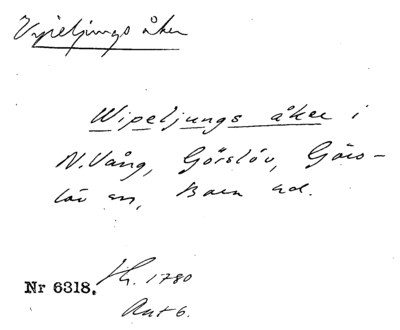 Vipeljungs åker
Wipeljungs åker i
N.Vång, Görslöv, Görs-
löv sn, Bara hd.
Nr 6318. Hh. 1780
Akt 6.